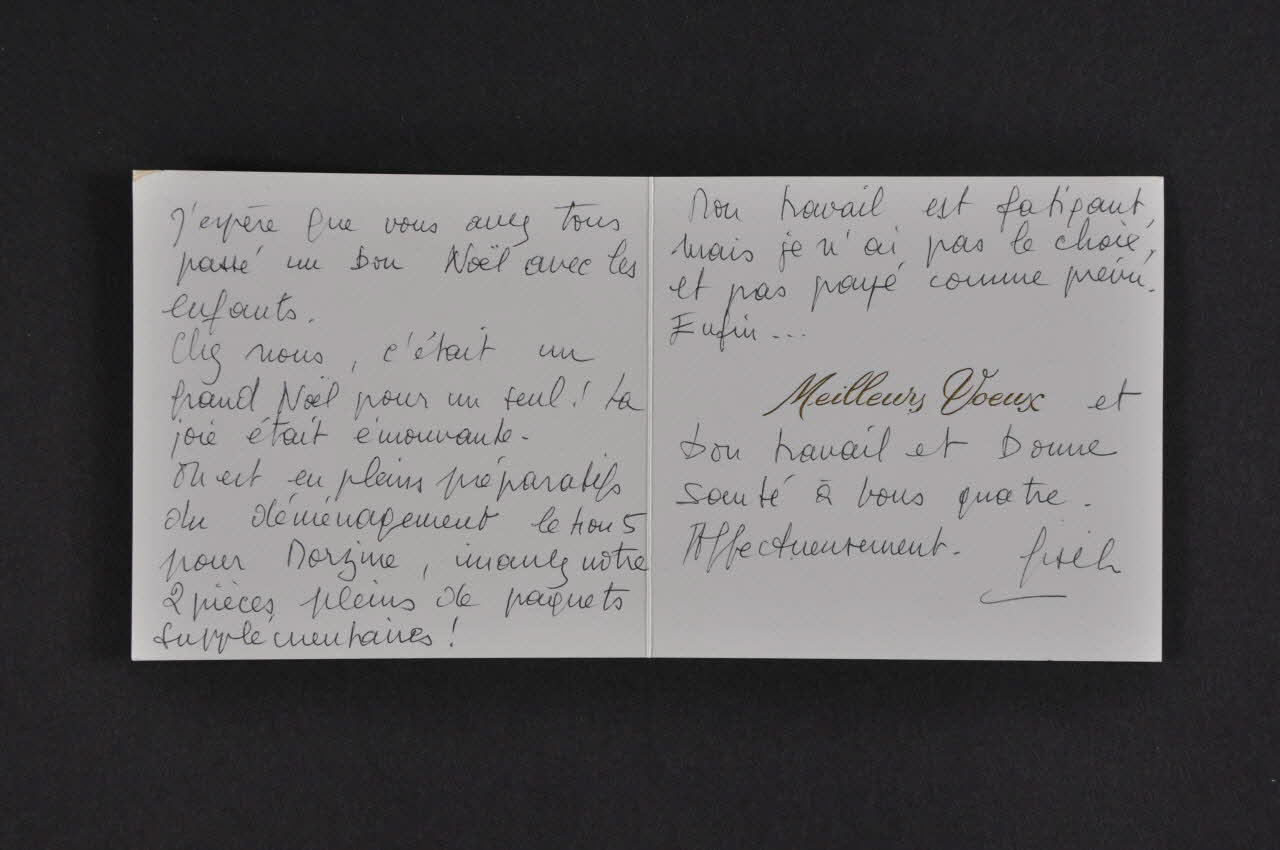 J'espère que vous avez tous
passé un bon Noël avec les
enfants.
Chez nous, c'était un
grand Noël pour un seul ! La
joie était émouvante.
On est en pleins préparatifs
du déménagement le 5
pour Morzine, notre
2 pièces pleins de paquets
supplémentaires !
Mon travail est fatigant,
mais je n'ai pas le choix,
et pas payé comme prévu.
Enfin...
Meilleurs Voeux et
bon travail et bonne
santé à vous quatre.
Affectueusement.